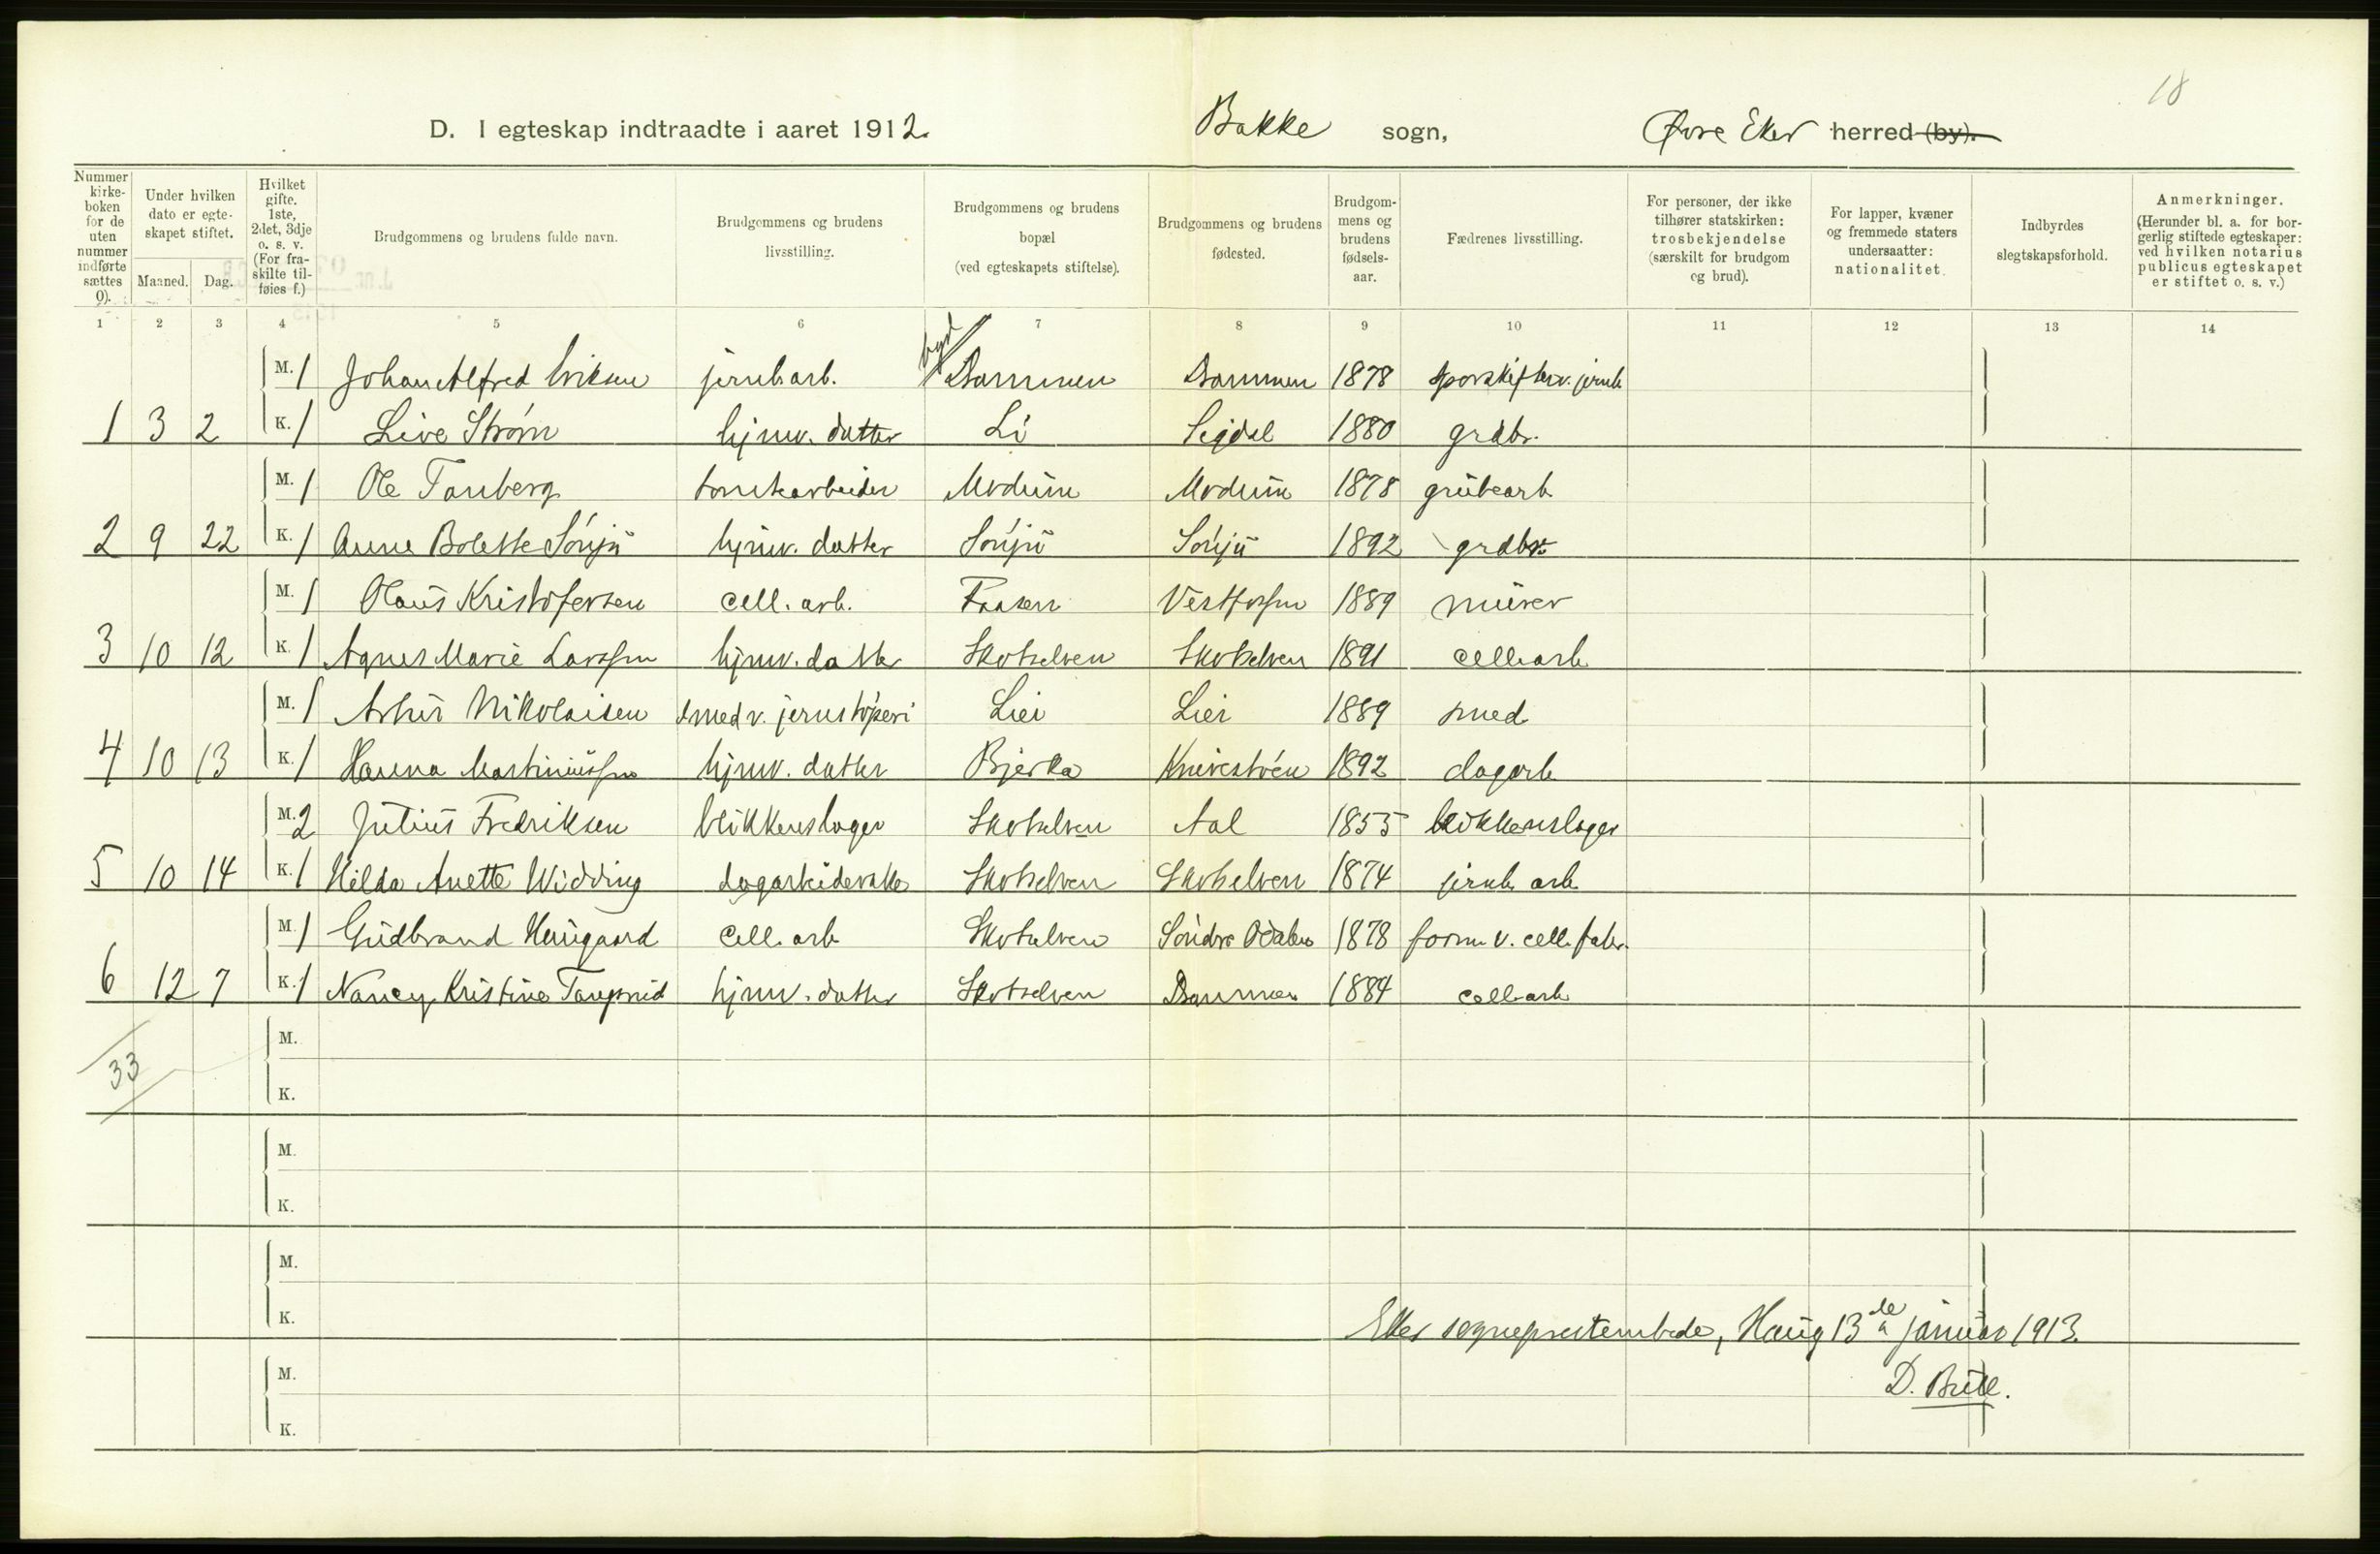 18
D. I egteskap indtraadte i aaret 1912. Bakke sogn, Øvre Eker herred (by).
Nummer kirkeboken for de uten nummer indførte sættes 0). Under hvilken dato er egteskapet stiftet. Maaned. Dag. Hvilket gifte. 1ste, 2det, 3dje o. s. v. (For fraskilte tilføies f.) Brudgommens og brudens fulde navn. Brudgommens og brudens livsstilling. Brudgommens og brudens bopæl (ved egteskapets stiftelse). Brudgommens og brudens fødested. Brudgommens og brudens fødselsaar. Fædrenes livsstilling. For personer, der ikke tilhører statskirken: trosbekjendelse (særskilt for brudgom og brud). For lapper, kvæner og fremmede staters undersaatter: nationalitet. Indbyrdes slegtskapsforhold. Anmerkninger. (Herunder bl. a. for borgerlig stiftede egteskaper: ved hvilken notarius publicus egteskapet er stiftet o. s. v.)
1 2 3 4 5 6 7 8 9 10 11 12 13 14
M. 1 Johan Alfred Eriksen jernb.arb. Drammen Drammen 1878 sporskifter v. jernb
1 3 2 K. 1 Live Strøm hjemv. datter Li Sigdal 1880 grdbr.
M. 1 Ole Tanberg tomtearbeider Modum Modum 1878 grubearb
2 9 22 K. 1 Anne Bolette Sönju hjemv. datter Sönju Sönju 1892 grdbr.
M. 1 Olaus Kristofersen cell. arb. Fossen Vestfossen 1889 murer
3 10 12 K. 1 Agnes Marie Larssen hjemv. datter Skotselven Skotselven 1891 cell.arb
M. 1 Artur Nikolaisen smed v. jernstöperi Lier Lier 1889 smed
4 10 13 K. 1 Hanna Martiniussen hjemv. datter Bjerka Knivestöen 1892 dagarb
M. 2 Julius Fredriksen blikkenslager Skotselven Aal 1855 blikkenslager
5 10 14 K. 1 Hilda Anette Widding dagarbeiderske Skotselven Skotselven 1874 jernb. arb
M. 1 Gudbrand Haugaard Cell. arb Skotselven Söndre Odalen 1878 form v. cell. fabr.
6 12 7 K. 1 Nancy Kristine hjemv. datter Skotselven Drammen 1884 cell.arb
33
M.
K.
M.
K.
M.
K.
Eker sogneprestembede, Haug 13de januar 1913.
M.
D. Bull.
K.